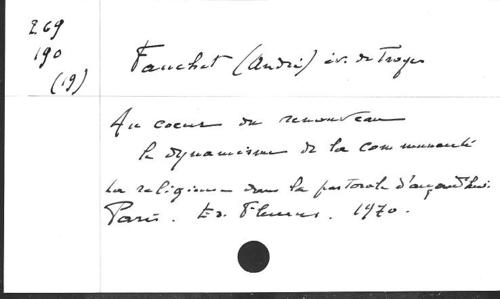 269
190
(19)
Fauchet (André) év. de Troyes
Au coeur du renouveau
le dynamisme de la communauté
La religieuse dans la pastorale d'aujourd'hui
Paris. Ed. Fleurus. 1970.